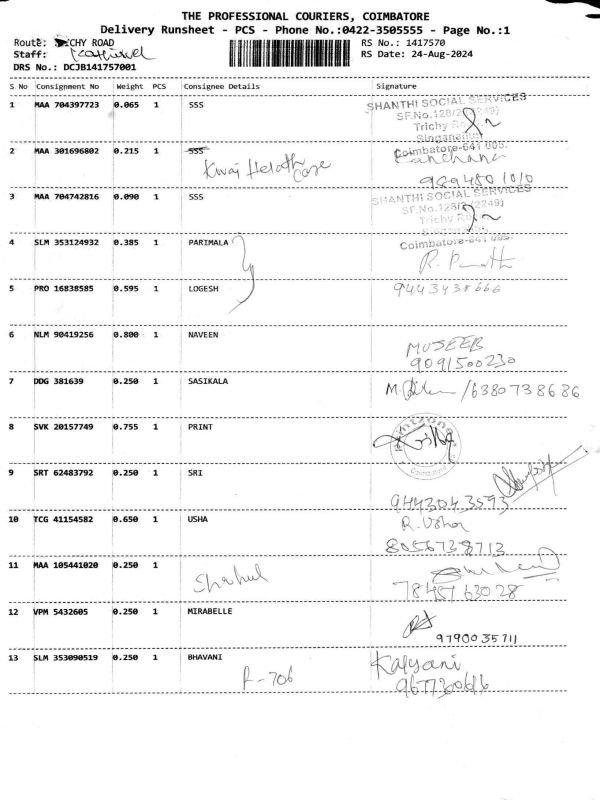 THE PROFESSIONAL COURIERS, COIMBATORE
Delivery Runsheet - PCS - Phone No.:0422-3505555 - Page No.:1
Route: CHY ROAD
RS No.: 1417570
Staff:
RS Date: 24-Aug-2024
DRS No.: DCJB141757001
S No Consignment No Weight PCS Consignee Details Signature
1 MAA 704397723 0.065 1 SSS
SHANTHI SOCIAL SERVICES
SF.No.128/2 (2249)
Trichy
Singanallur
Coimbatore-641 005.
2 MAA 301696802 0.215 1 SSS
Kwai Helath Care
Kanchana
9894801010
3 MAA 704742816 0.090 1 SSS
SHANTHI SOCIAL SERVICES
SF.No.128/2 (2249)
Trichy
Singanallur
Coimbatore-641 005.
4 SLM 353124932 0.385 1 PARIMALA
5 PRO 16838585 0.595 1 LOGESH
9443438666
6 NLM 90419256 0.800 1 NAVEEN
MUJEEB
9091500230
7 DDG 381639 0.250 1 SASIKALA
/6380738686
8 SVK 20157749 0.755 1 PRINT
9 SRT 62483792 0.250 1 SRI
9443043593
10 TCG 41154582 0.650 1 USHA
R. Usha
8056738713
11 MAA 105441020 0.250 1
Shahul
7845763028
12 VPM 5432605 0.250 1 MIRABELLE
9790035711
13 SLM 353090519 0.250 1 BHAVANI
F-706
Kalyani